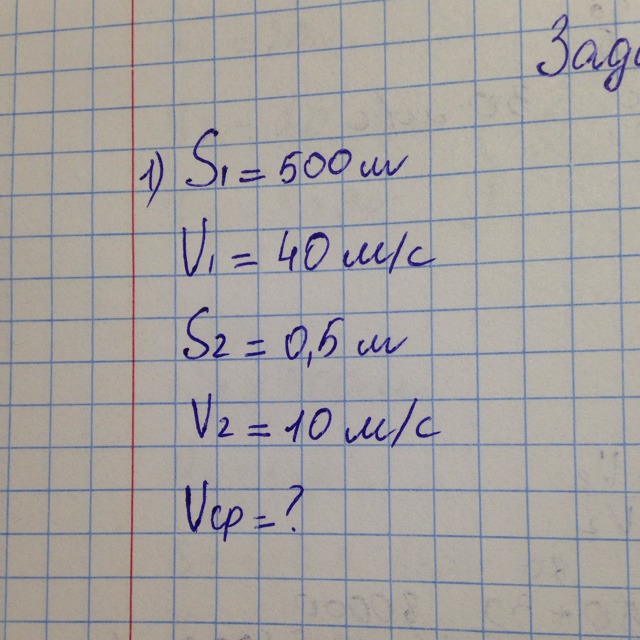 Зада
1) S₁ = 500 м
V₁ = 40 м/с
S₂ = 0,5 м
V₂ = 10 м/с
Vср = ?